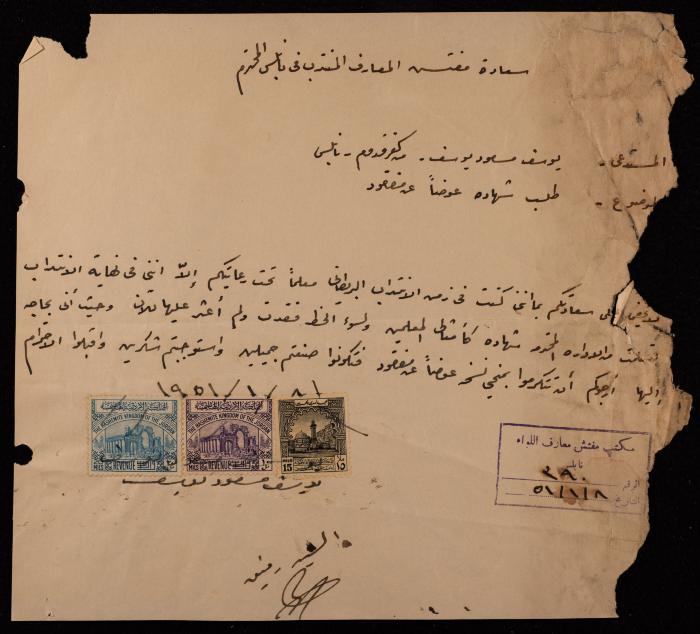 سعادة مفتش المعارف المنتدب في نابلس المحترم
المستدعي - يوسف مسعود يوسف - من كفر قدوم - نابلس
الموضوع - طلب شهاده عوضاً عن مفقود
سعادتكم بما أنني كنت في زمن الانتداب البريطاني معلماً تحت رعايتكم إلاّ انني في نهاية الانتداب
من الاداره شهاده كأمثالي المعلمين ولسوء الحظ فقدت ولم أعثر عليها للآن وحيث أني بحاجه
إليها أرجوكم أن تتكرموا بمنحي عوضاً عن مفقود فتكونوا صنعتم جميلين واستوجبتم شكرين واقبلوا الاحترام
١٩٥١/١/٨
THE HASHEMITE KINGDOM OF THE JORDAN
REVENUE
THE HASHEMITE KINGDOM OF THE JORDAN
REVENUE
15 ١٥
يوسف مسعود يوسف
مكتب مفتش معارف اللواء
نابلس
الرقم ٣٩٠
التاريخ ٥١/١/٨
السيد رفيق